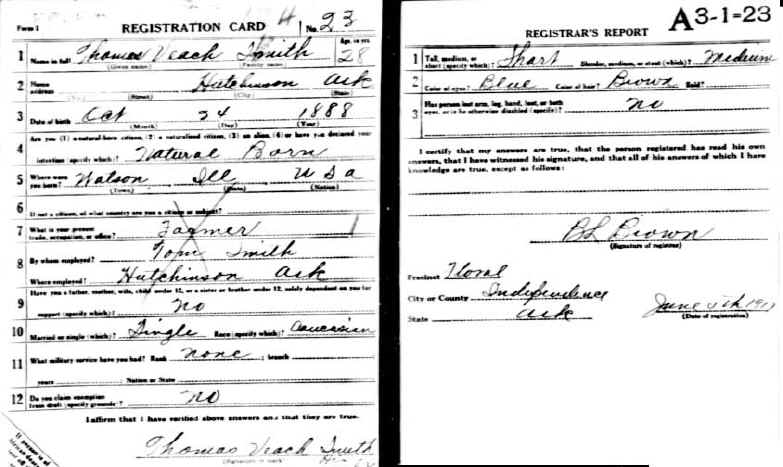 Form 1 REGISTRATION CARD H No. 23
1 Name in full Thomas Veach Smith Age, in yrs. 28
(Given name) (Family name)
2 Home address Hutchinson Ark
(No.) (Street) (City) (State)
3 Date of birth Oct 24 1888
(Month) (Day) (Year)
Are you (1) a natural-born citizen, (2) a naturalized citizen, (3) an alien, (4) or have you declared your
4 intention (specify which)? Natural Born
5 Where were you born? Watson Ill U S a
(Town) (State) (Nation)
6 If not a citizen, of what country are you a citizen or subject?
7 What is your present trade, occupation, or office? Farmer
8 By whom employed? Tom Smith
Where employed? Hutchinson Ark
Have you a father, mother, wife, child under 12, or a sister or brother under 12, solely dependent on you for
9 support (specify which)? No
10 Married or single (which)? Single Race (specify which)? Caucasian
11 What military service have you had? Rank none ; branch
years ; Nation or State
12 Do you claim exemption from draft (specify grounds)? No
I affirm that I have verified above answers and that they are true.
Thomas Veach Smith
(Signature or mark)
If person is of African
REGISTRAR'S REPORT A3-1=23
1 Tall, medium, or short (specify which)? Short Slender, medium, or stout (which)? Medium
2 Color of eyes? Blue Color of hair? Brown Bald?
3 Has person lost arm, leg, hand, foot, or both eyes, or is he otherwise disabled (specify)? no
I certify that my answers are true, that the person registered has read his own
answers, that I have witnessed his signature, and that all of his answers of which I have
knowledge are true, except as follows:
B L Brown
(Signature of registrar)
Precinct Floral
City or County Independence
State Ark June 5th 1917
(Date of registration)